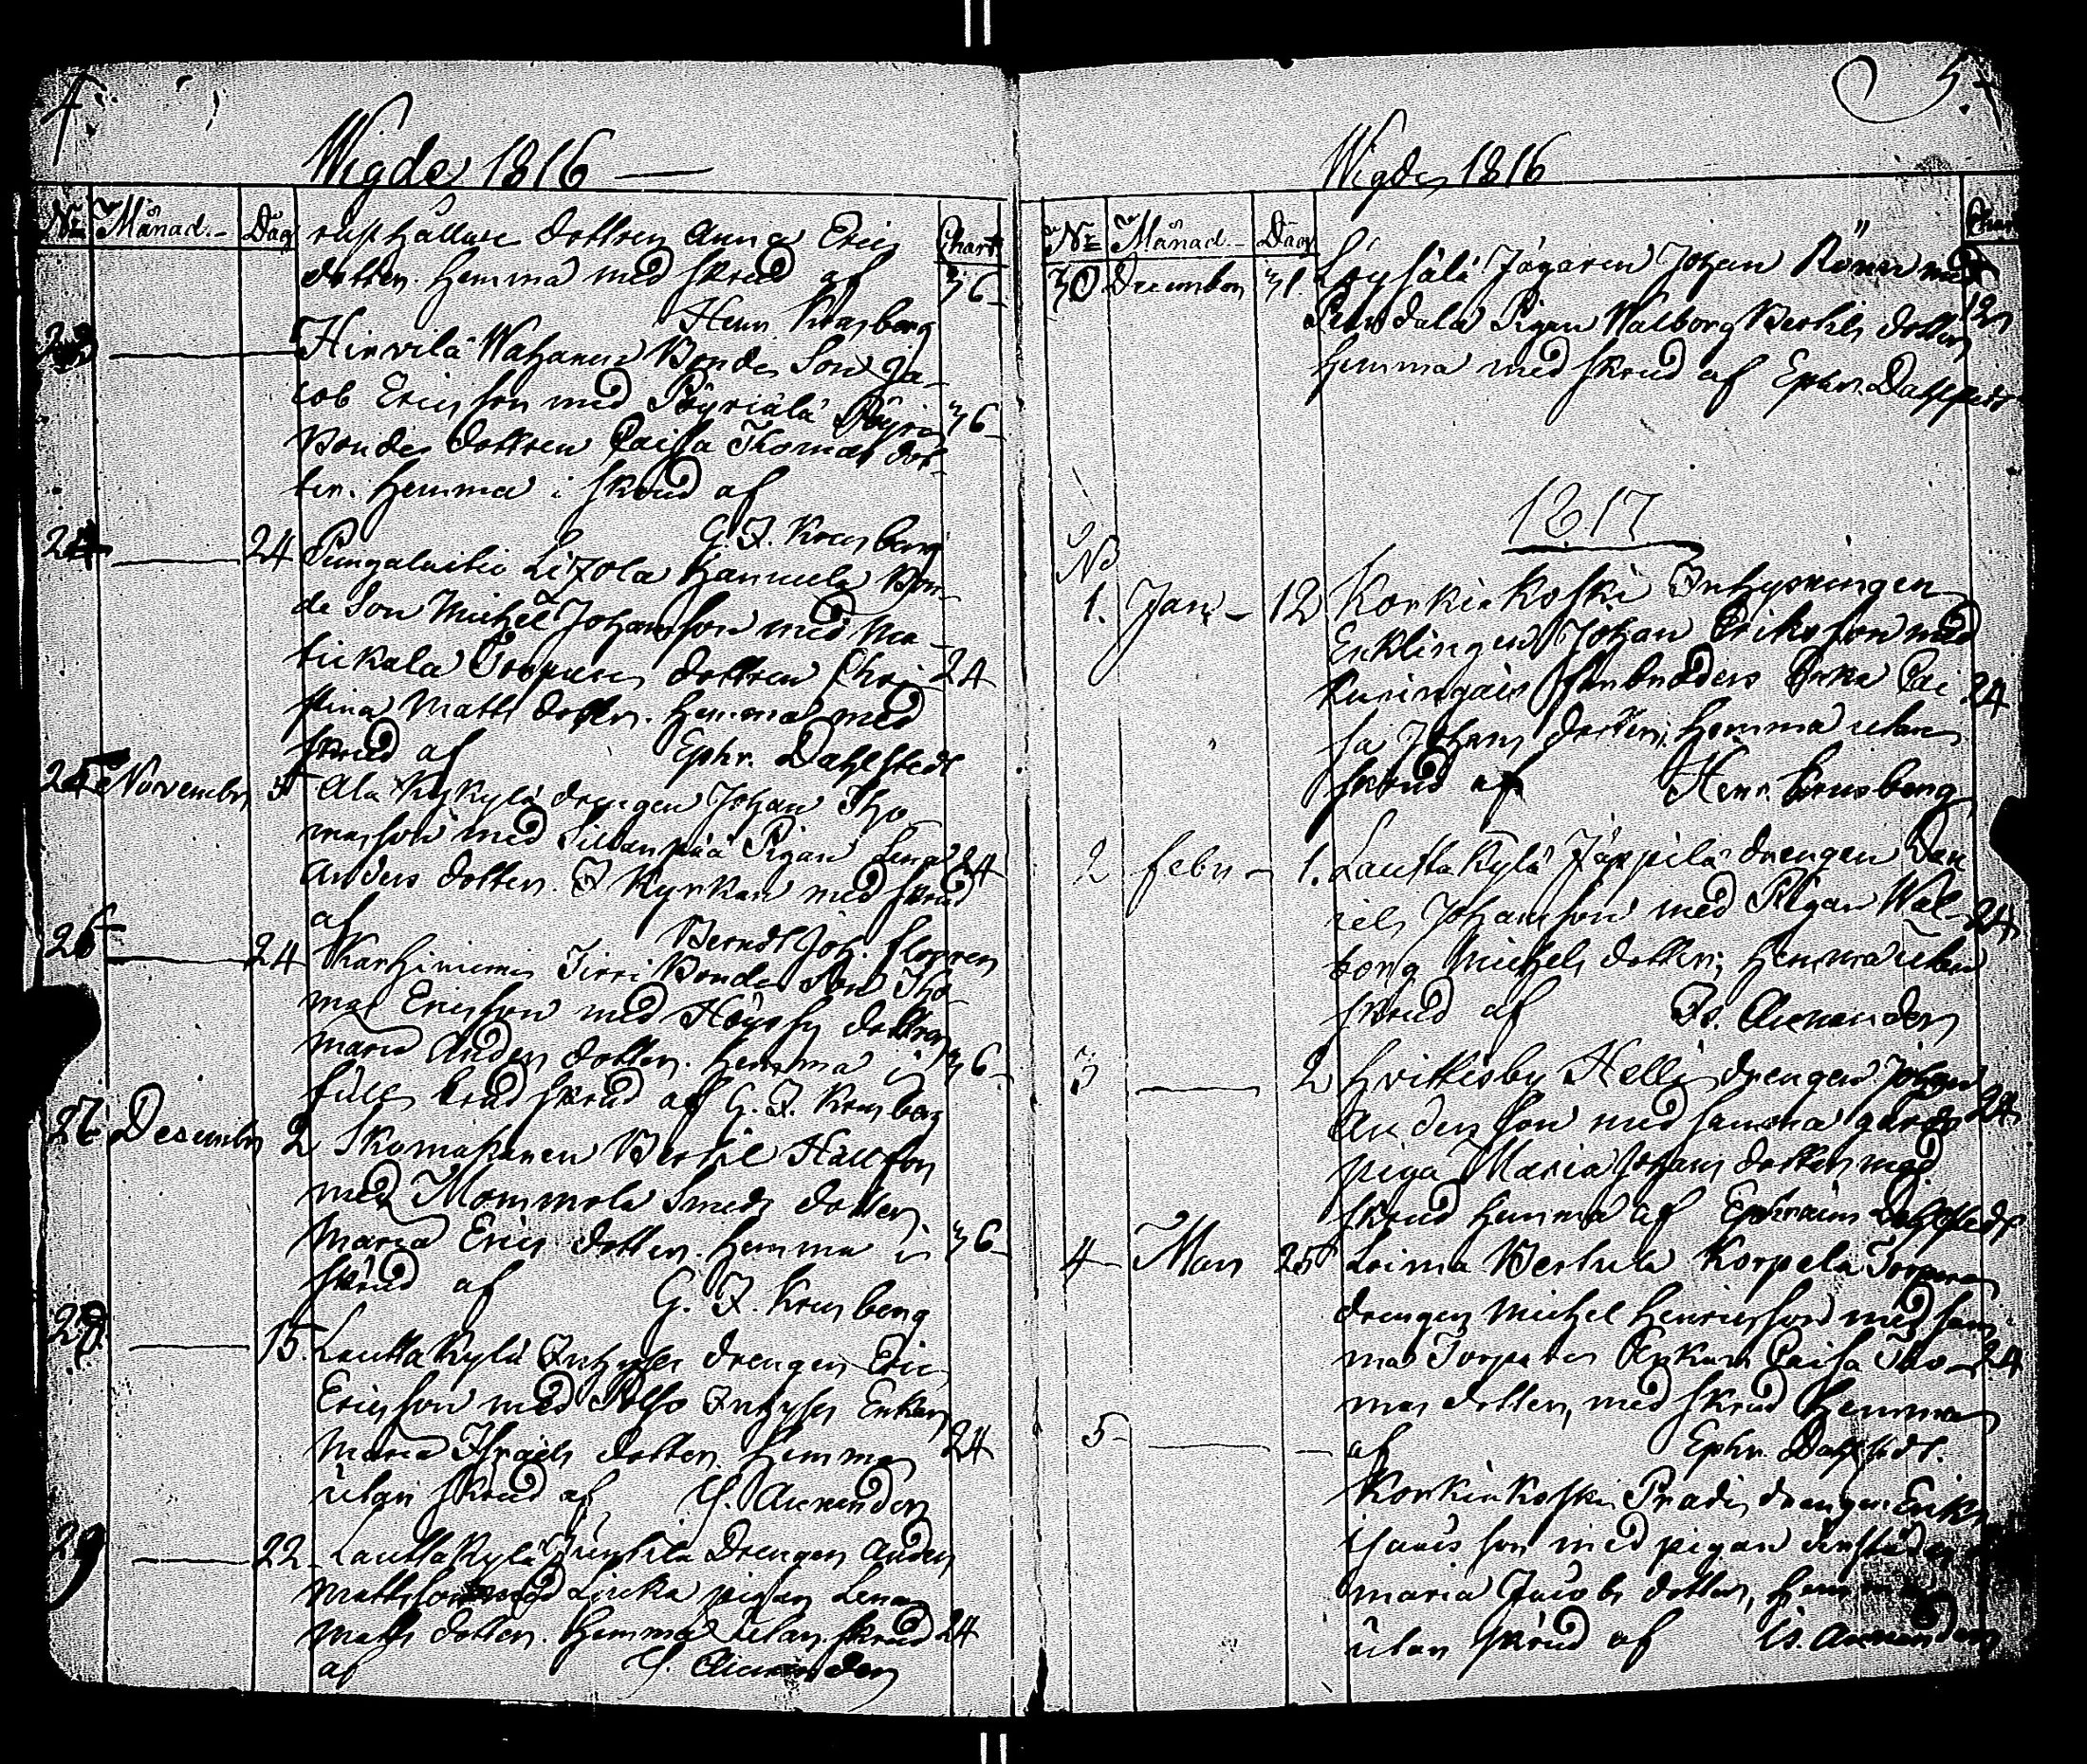 4.
Wigde 1816 —
No Månad. Dag
rusthållare dottren Anna Erics
Chart
dotter. Hemma med skrud af 36
Henr. Krusberg
23 — Hirvilä Wahanen Bonde Son Ja-
cob Ericsson med Pöyriälä Pöyri 36
Bondes dottren Caisa Thomas dot-
ter. Hemma i skrud af
G. F. Krusberg
24 — 24 Pungalaitio Hannula Bon-
de Son Michel Johansson med Ma-
tickala Torpares dottren Chri- 24
stina Matts dotter. Hemma med
skrud af Ephr. Dahlstedt
25 November 5 Ala Kykylä drengen Johan Tho-
masson med Sillanpää Pigan Lena 24
Anders dotter. I Kyrkan med skrud
af Berndt Joh. Florren
26 — 24 Karhiniemi Jirri Bonde Son Tho-
mas Ericsson med dottren
Maria Anders dotter. Hemma i 36
full brud skrud af G. F. Krusberg
27 December 2 Skomakaren Bertil Hallfors
med Mommola Smeds dotter
Maria Erics dotter. Hemma i 36
skrud af G. F. Krusberg
28 — 15. Lauttakylä Inhyses drengen Eric
Ericsson med Inhyses Enkan
Maria Israels dotter. Hemma 24
utan skrud af Is. Avenander
29 — 22 Lauttakylä Drengen Anders
Mattsson med pigan Lena
Matts dotter. Hemma utan skrud 24
af Is. Avenander
5.
Wigde 1816
No Månad Dag
Chart
30 December 31. Löysälä Jägaren Johan Rönn med
Pigan Walborg Bertils dotter 12
hemma med skrud af Ephr. Dahlstedt
1817
No
1. Jan — 12 Korkiakoski Inhysningen
Enklingen Johan Eriksson med
Enka Cai 24
sa Johans dotter; hemma utan
skrud af Henr. Krusberg
2 Febr — 1. Lauttakylä Jäppilä drengen Dan
iels Johansson med Pigan Wal- 24
borg Michels dotter; hemma utan
skrud af Is. Avenander
3 — 2 Hvittisby Helli drengen Johan
Andersson med samma gårds 24
piga Maria Johans dotter med
skrud hemma af Ephraim Dahlstedt
4 — Mars 25 Loima Bertula Korpela Torpare
drengen Michel Henricsson med sam-
ma Torpares Enkan Caisa Tho- 24
mas dotter, med skrud Hemma
5 — — af Ephr. Dahlstedt.
Korkiakoski Pradi drengen Erik
Isacs son med pigan
Maria Jacobs dotter, hemma
utan skrud af Is. Avenander